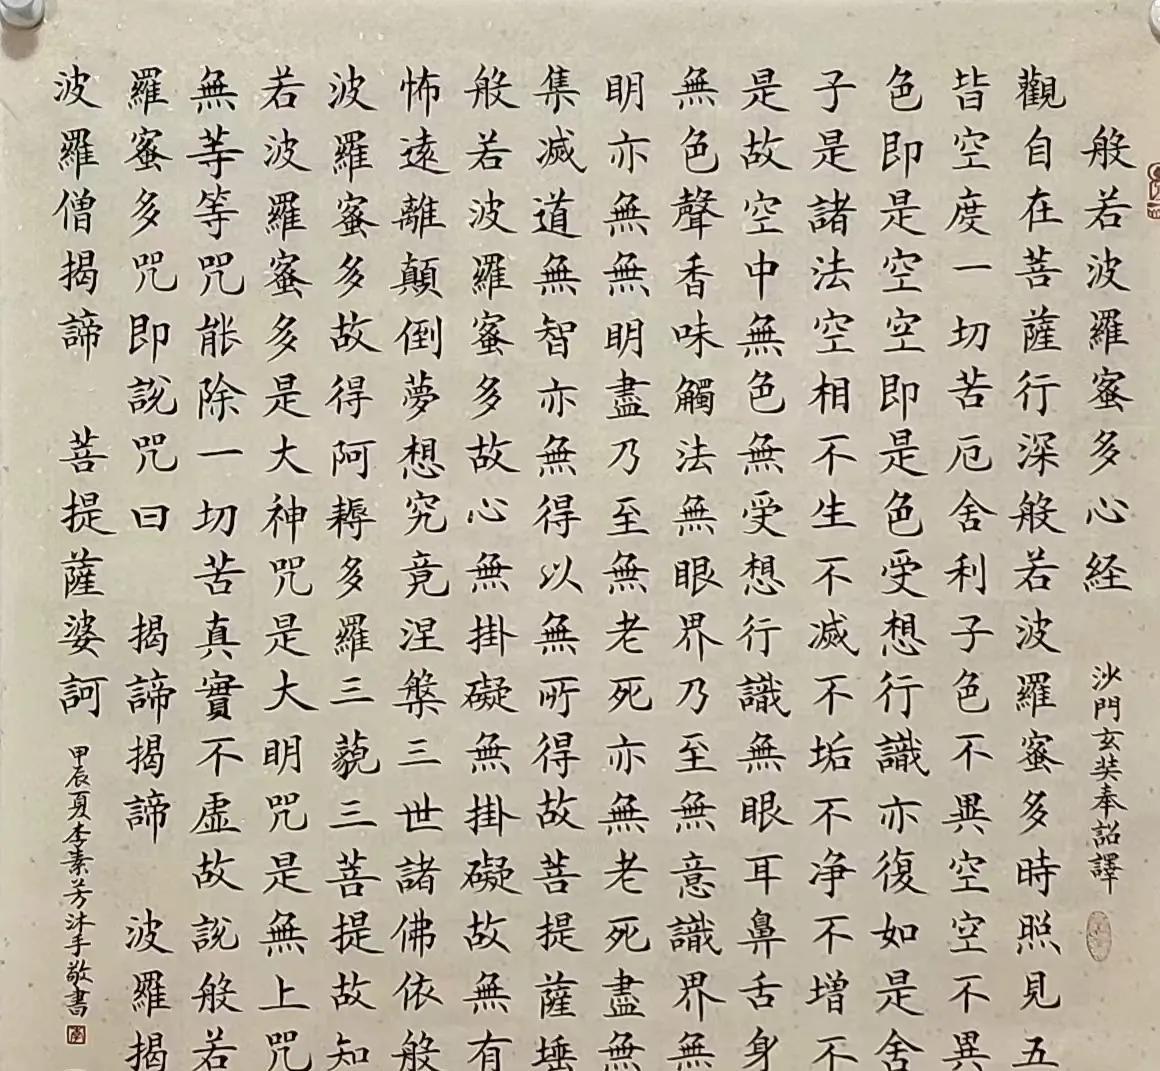 般若波羅蜜多心経
沙門玄奘奉詔譯
觀自在菩薩行深般若波羅蜜多時照見五
皆空度一切苦厄舍利子色不異空空不異
色即是空空即是色受想行識亦復如是舍
子是諸法空相不生不滅不垢不净不增不
是故空中無色無受想行識無眼耳鼻舌身
無色聲香味觸法無眼界乃至無意識界無
明亦無無明盡乃至無老死亦無老死盡無
集滅道無智亦無得以無所得故菩提薩埵
般若波羅蜜多故心無掛礙無掛礙故無有
怖遠離顛倒夢想究竟涅槃三世諸佛依般
波羅蜜多故得阿耨多羅三藐三菩提故知
若波羅蜜多是大神咒是大明咒是無上咒
無等等咒能除一切苦真實不虛故說般若
羅蜜多咒即說咒曰 揭諦揭諦 波羅揭
波羅僧揭諦 菩提薩婆訶
甲辰夏李素芳沐手敬書